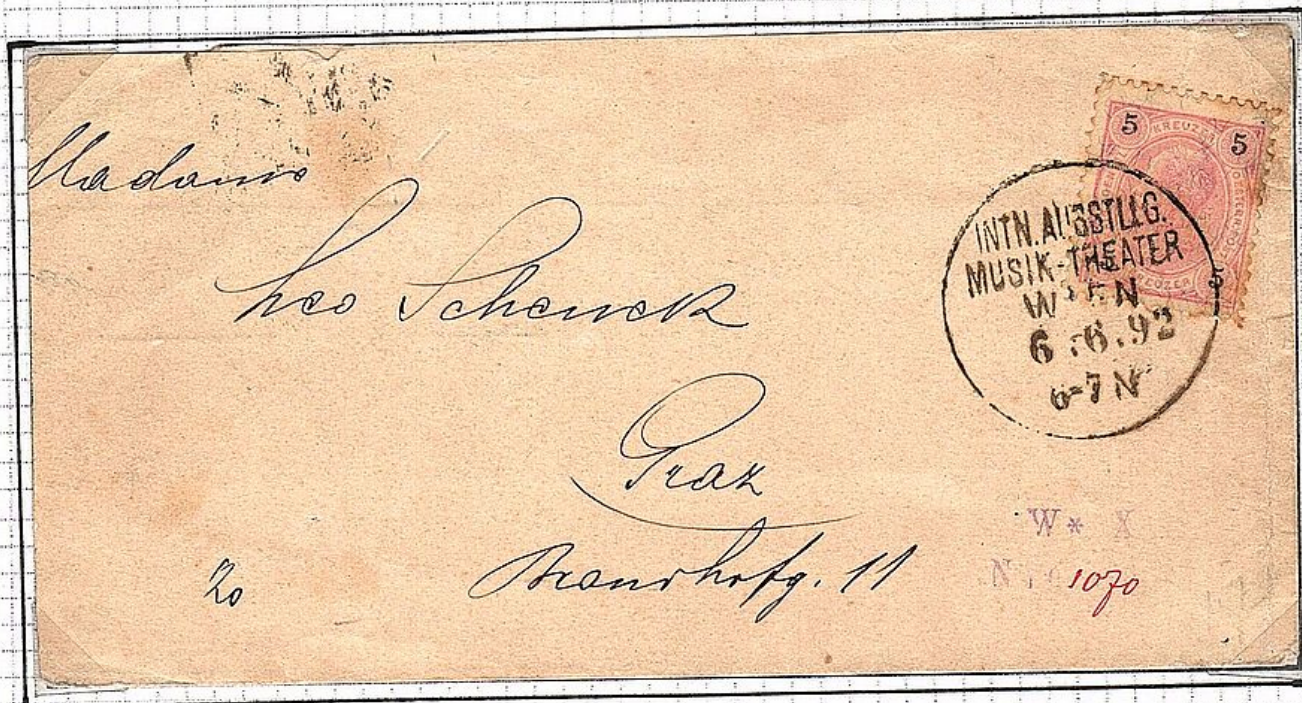 Madame
Leo Schenck
Graz
Brandhofg. 11
20
5 KREUZER 5
5
INTN. AUSSTLLG.
MUSIK-THEATER
WIEN
6.6.92
6-7 N
W * X
N
1070